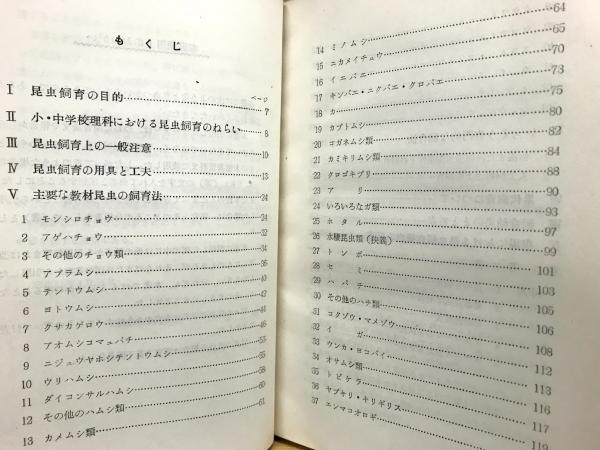 もくじ
ページ
I 昆虫飼育の目的 7
II 小・中学校理科における昆虫飼育のねらい 8
III 昆虫飼育上の一般注意 10
IV 昆虫飼育の用具と工夫 13
V 主要な教材昆虫の飼育法 24
1 モンシロチョウ 24
2 アゲハチョウ 32
3 その他のチョウ類 34
4 アブラムシ
5 テントウムシ 40
6 ヨトウムシ 42
7 クサカゲロウ 44
8 アオムシコマユバチ 46
9 ニジュウヤホシテントウムシ
10 ウリハムシ 55
11 ダイコンサルハムシ 58
12 その他のハムシ類 60
13 カメムシ類 61
14 ミノムシ 64
15 ニカメイチュウ 65
16 イエバエ 70
17 キンバエ・ニクバエ・クロバエ 73
18 カ 75
19 カブトムシ 80
20 コガネムシ類 82
21 カミキリムシ類 84
22 クロゴキブリ 88
23 アリ 90
24 いろいろなガ類 93
25 ホタル 97
26 水棲昆虫類(狭義) 99
27 トンボ 101
28 セミ 103
29 ハバチ 105
30 その他のハチ類 106
31 コクゾウ・マメゾウ 108
32 イガ 112
33 ウンカ・ヨコバイ 113
34 オサムシ類 116
35 トビケラ 117
36 ヤブキリ・キリギリス 119
37 エンマコオロギ